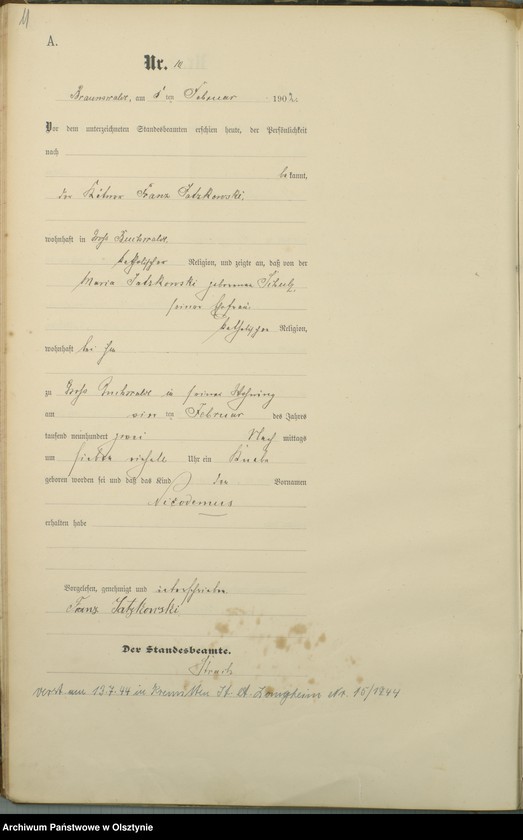 11
A.
Nr. 11
Braunswalde, am 8 ten Februar 1902.
Vor dem unterzeichneten Standesbeamten erschien heute, der Persönlichkeit
nach
bekannt,
der Kätner Franz Jatzkowski.
wohnhaft in Groß Buchwalde.
katholischer Religion, und zeigte an, daß von der
Maria Jatzkowski geborenen Schulz,
seiner Ehefrau
katholischer Religion,
wohnhaft bei ihm
zu Groß Buchwalde in seiner Wohnung
am vier ten Februar des Jahres
tausend neunhundert zwei Nachmittags
um sieben einhalb Uhr ein Knabe
geboren worden sei und daß das Kind den Vornamen
Nicodemus
erhalten habe
Vorgelesen, genehmigt und unterschrieben
Franz Jatzkowski
Der Standesbeamte.
verst am 13.7.44 in St. A. Langheim Nr. 15/1944
Archiwum Państwowe w Olsztynie